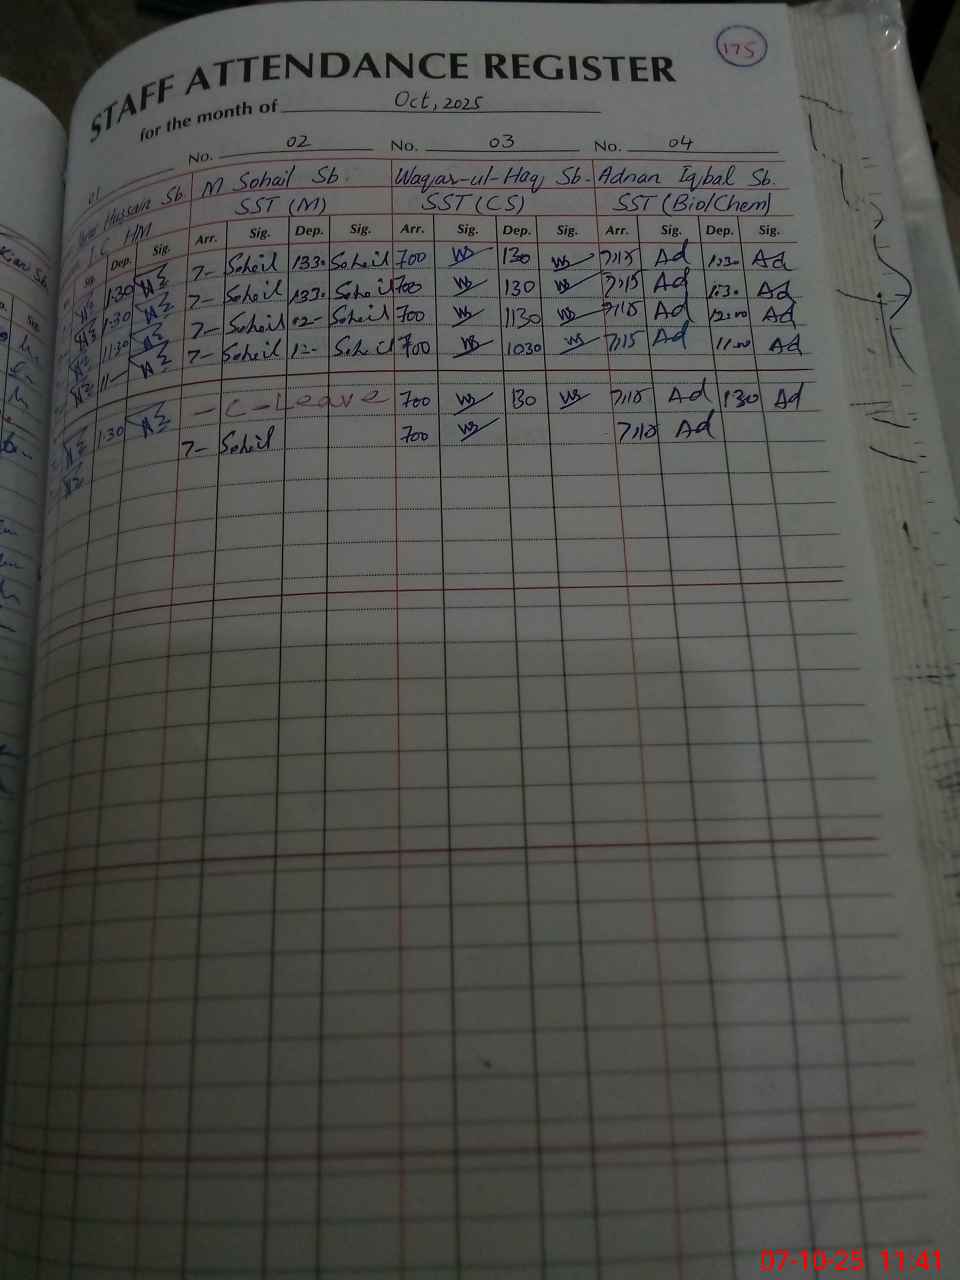 175
STAFF ATTENDANCE REGISTER
for the month of Oct, 2025
01 No. 02 No. 03 No. 04
Hussain Sb. M Sohail Sb. Waqas-ul-Haq Sb. Adnan Iqbal Sb.
I C HM SST (M) SST (CS) SST (Bio/Chem)
Sig. Dep. Sig. Arr. Sig. Dep. Sig. Arr. Sig. Dep. Sig. Arr. Sig. Dep. Sig.
1:30 7- Sohail 1:33. Sohail 700 130 7:15 Ad 1:30 Ad
1:30 7- Sohail 133. Sohail 700 130 7:15 Ad 1:30 Ad
11:30 7- Sohail 12- Sohail 700 1130 7:15 Ad 12:00 Ad
11- 7- Sohail Sohail 700 1030 7:15 Ad 11:00 Ad
1:30 - C-Leave 700 130 7:15 Ad 1:30 Ad
7- Sohail 700 7:10 Ad
07-10-25 11:41